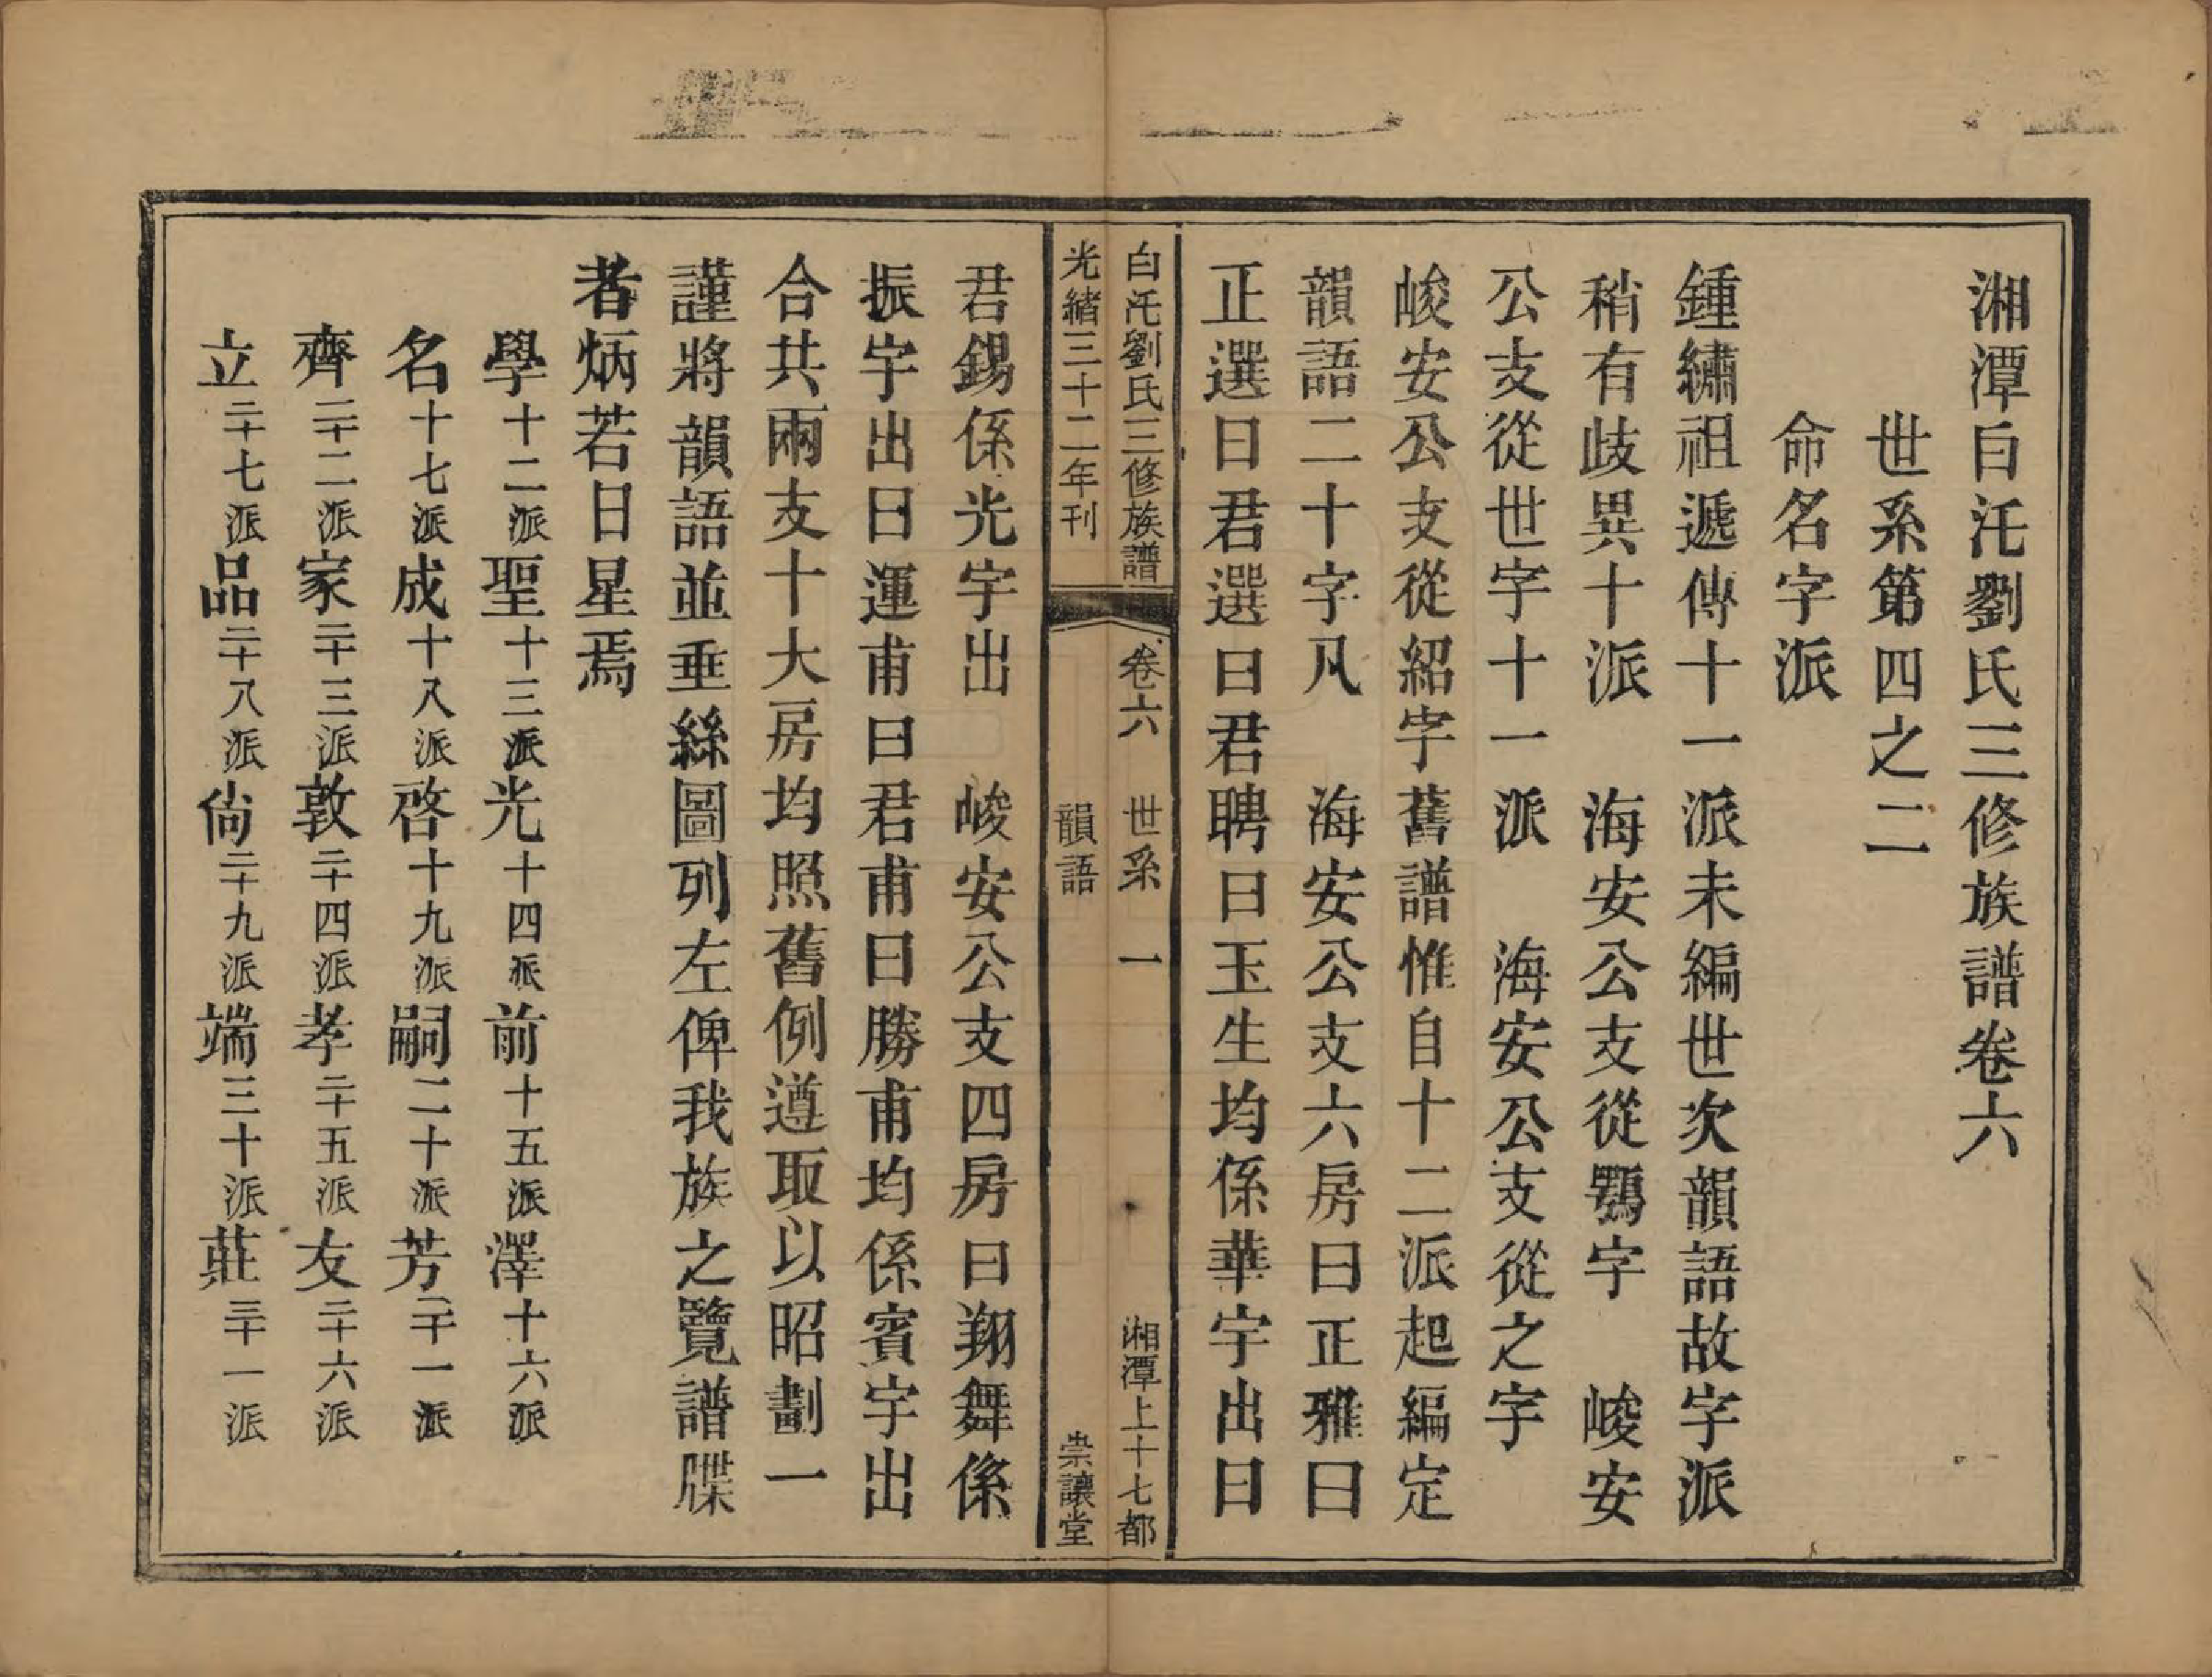 湘潭白汑劉氏三修族譜卷六
世系第四之二
命名字派
鍾繡祖遞傳十一派未編世次韻語故字派
稍有歧異十派　海安公支從鶚字　峻安
公支從世字十一派　海安公支從之字
峻安公支從紹字舊譜惟自十二派起編定
韻語二十字凡　海安公支六房曰正雅曰
正選曰君選曰君聘曰玉生均係華宇出曰
白汑劉氏三修族譜　卷六　世系　一　湘潭上十七都
光緒三十二年刊　韻語　崇讓堂
君錫係光宇出　峻安公支四房曰翔舞係
振宇出曰運甫曰君甫曰勝甫均係賓宇出
合共兩支十大房均照舊例遵取以昭劃一
謹將韻語並垂絲圖列左俾我族之覽譜牒
者炳若日星焉
學十二派聖十三派光十四派前十五派澤十六派
名十七派成十八派啓十九派嗣二十派芳二十一派
齊二十二派家二十三派敦二十四派孝二十五派友二十六派
立二十七派品二十八派尚二十九派端三十派莊三十一派